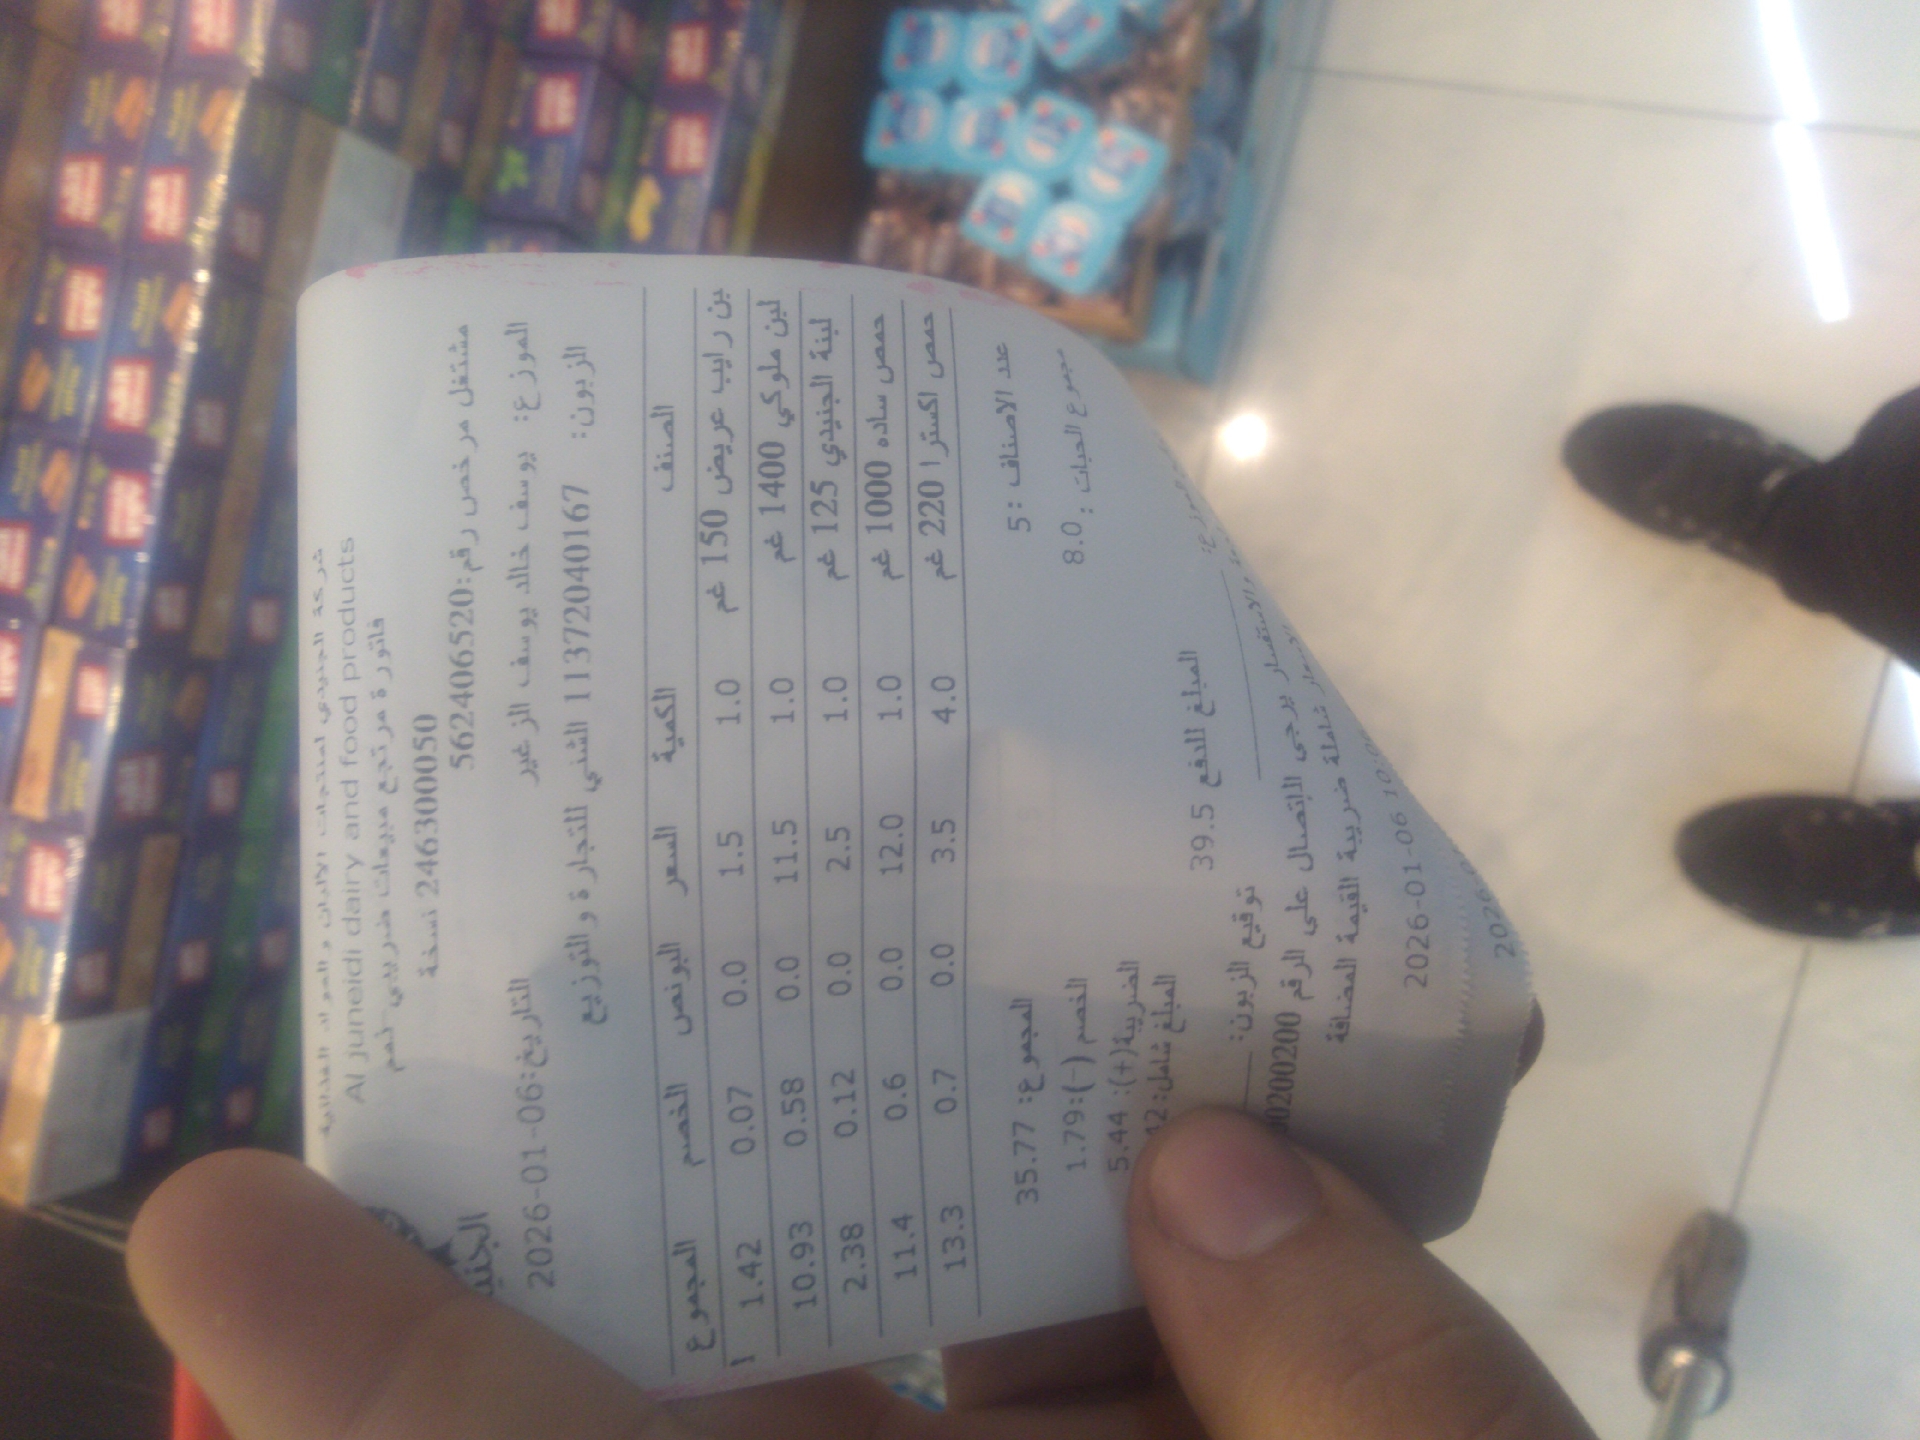 شركة الجنيدي لمنتجات الالبان والمواد الغذائية
Al juneidi dairy and food products
فاتورة مرتجع مبيعات ضريبي-لحم
246300050 نسخة
مشتغل مرخص رقم:562406520
الموزع: يوسف خالد يوسف الزغير التاريخ:2026-01-06
الزبون: 1137204016​7 الشني للتجارة والتوزيع
الصنف الكمية السعر البونص الخصم المجموع
بن رايب عريض 150 غم 1.0 1.5 0.0 0.07 1.42
لبن ملوكي 1400 غم 1.0 11.5 0.0 0.58 10.93
لبنة الجنيدي 125 غم 1.0 2.5 0.0 0.12 2.38
حمص ساده 1000 غم 1.0 12.0 0.0 0.6 11.4
حمص اكسترا 220 غم 4.0 3.5 0.0 0.7 13.3
عدد الاصناف :5 المجموع: 35.77
مجموع الحبات : 8.0 الخصم (-):1.79
الضريبة(+): 5.44
المبلغ شامل:
المبلغ للدفع 39.5
توقيع الزبون:
والاستفسار يرجى الاتصال على الرقم
شاملة ضريبة القيمة المضافة
2026-01-06